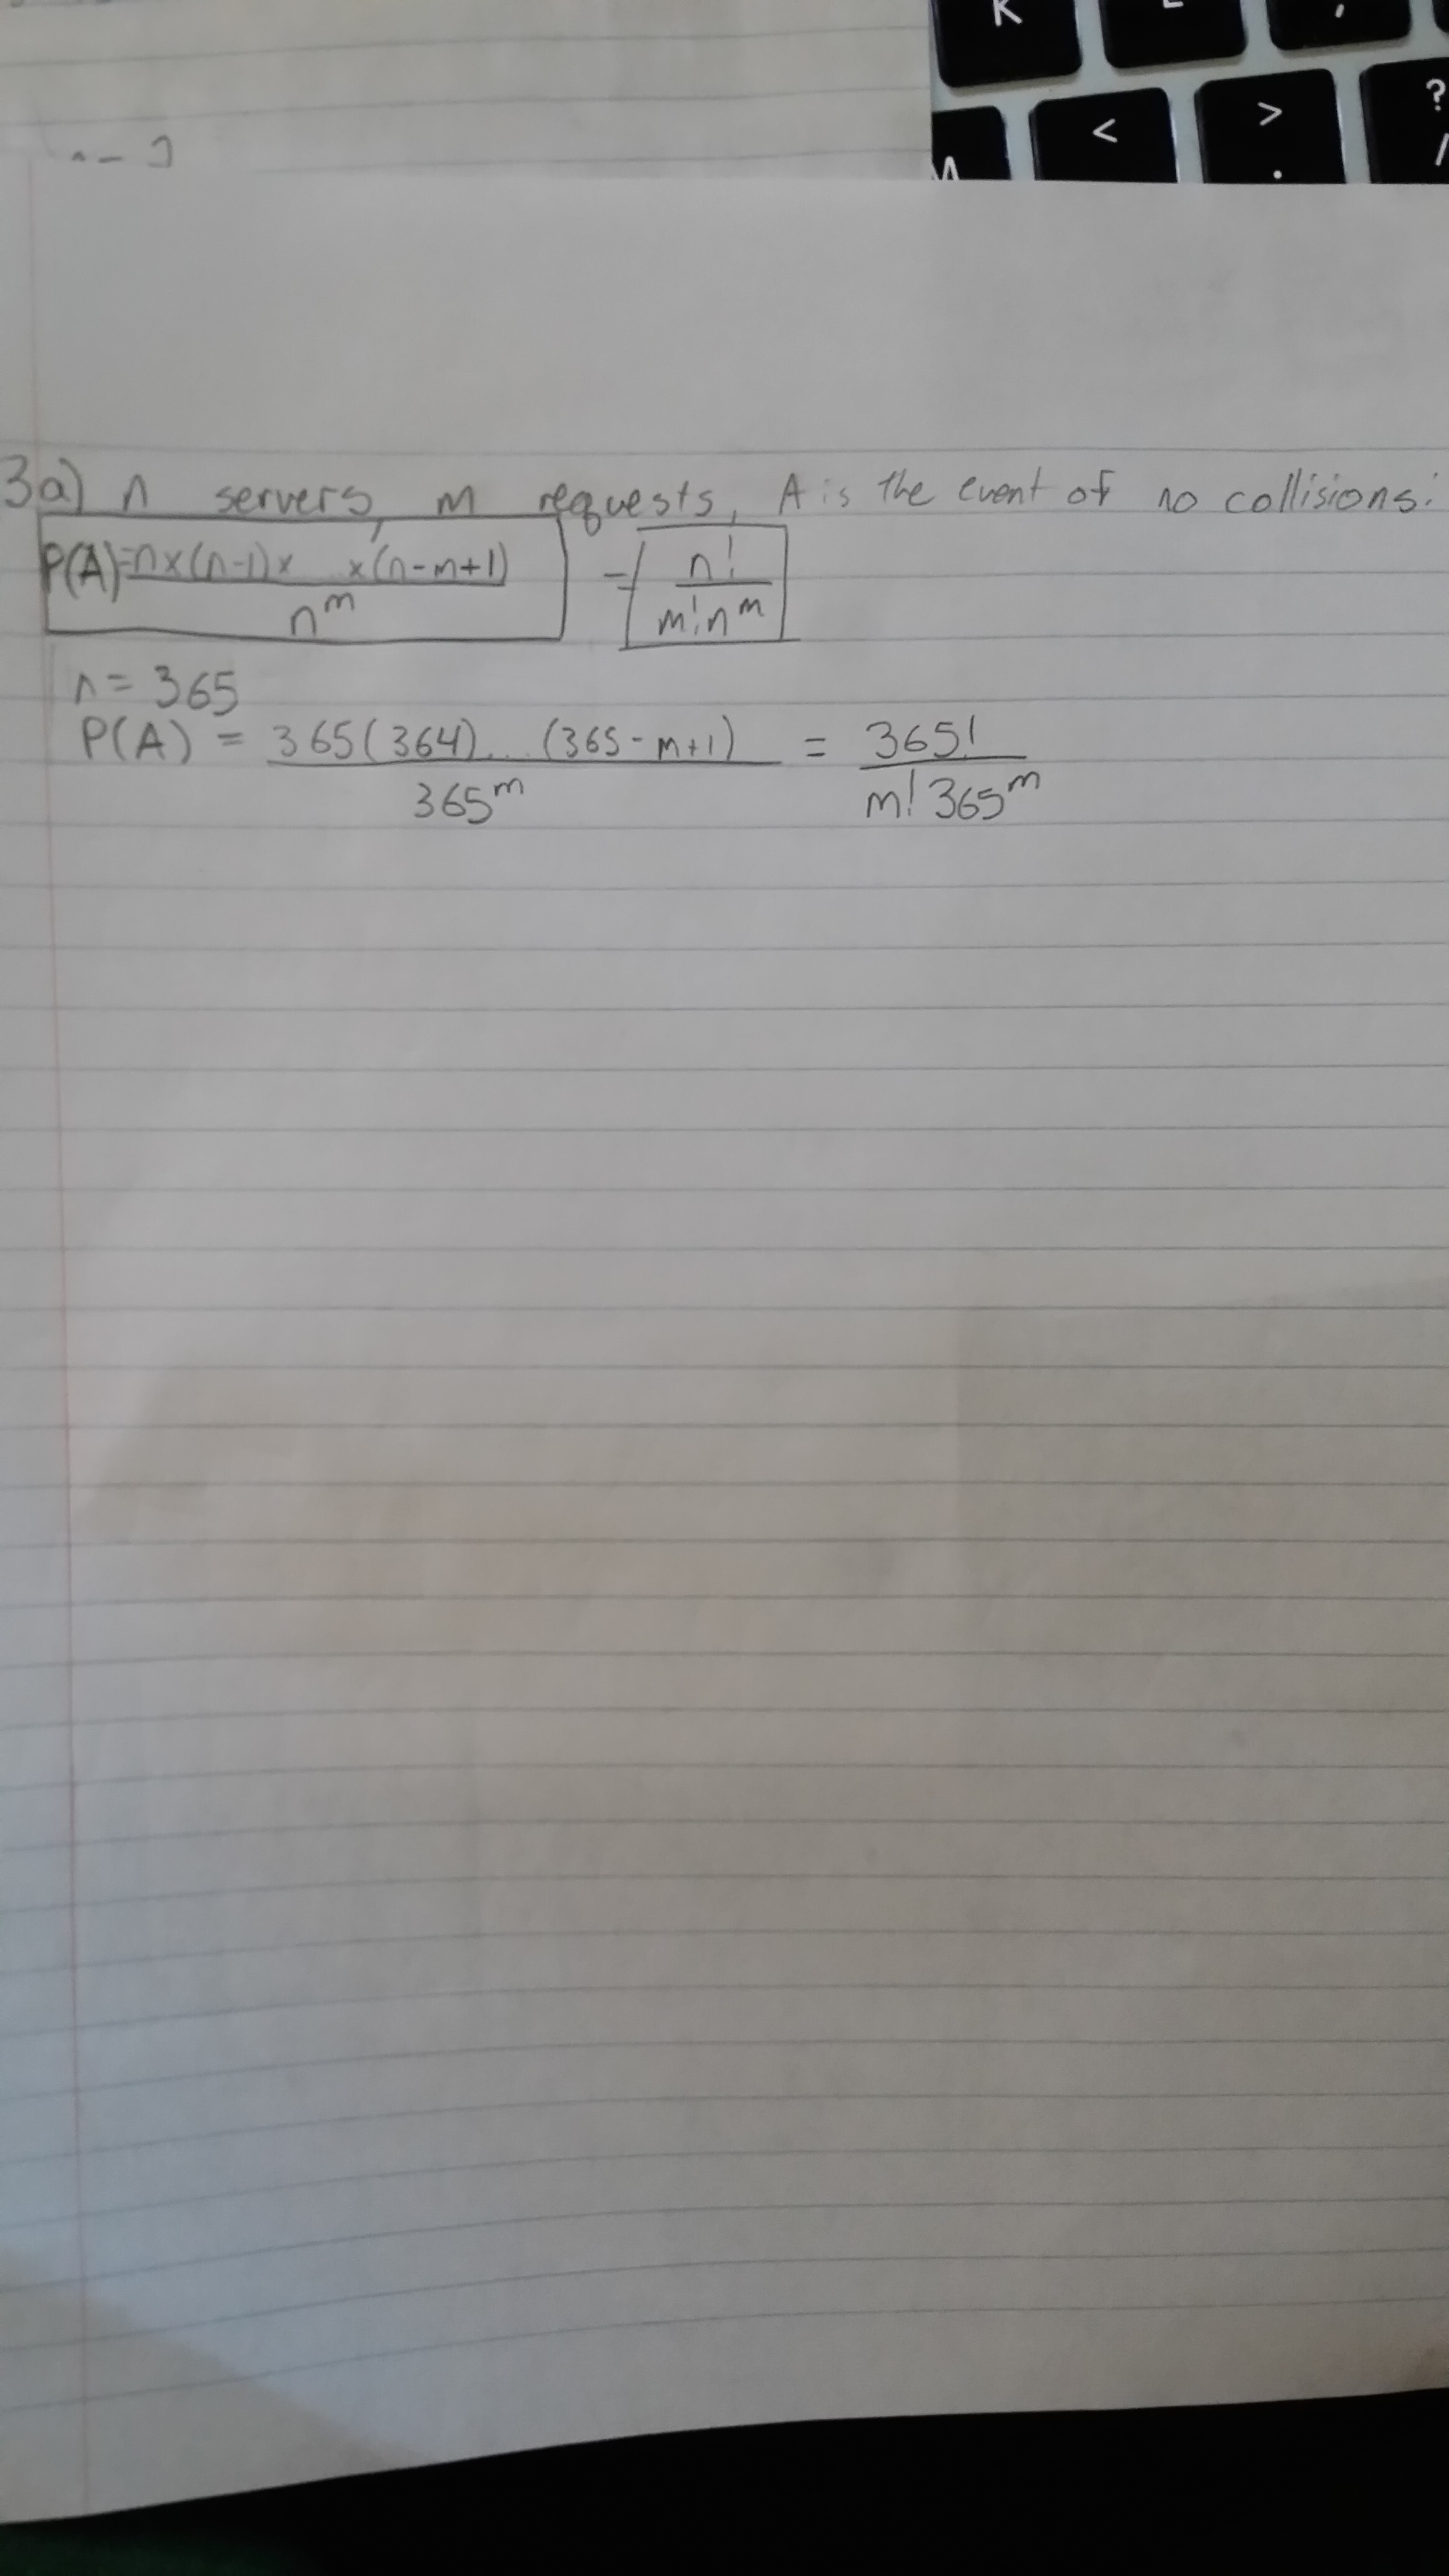 K
< > ?
. /
3a) n servers, m requests, A is the event of no collisions:
P(A)=n×(n-1)× ×(n-m+1)/n^m = n!/m!n^m
n = 365
P(A) = 365(364)...(365-m+1)/365^m = 365!/m! 365^m